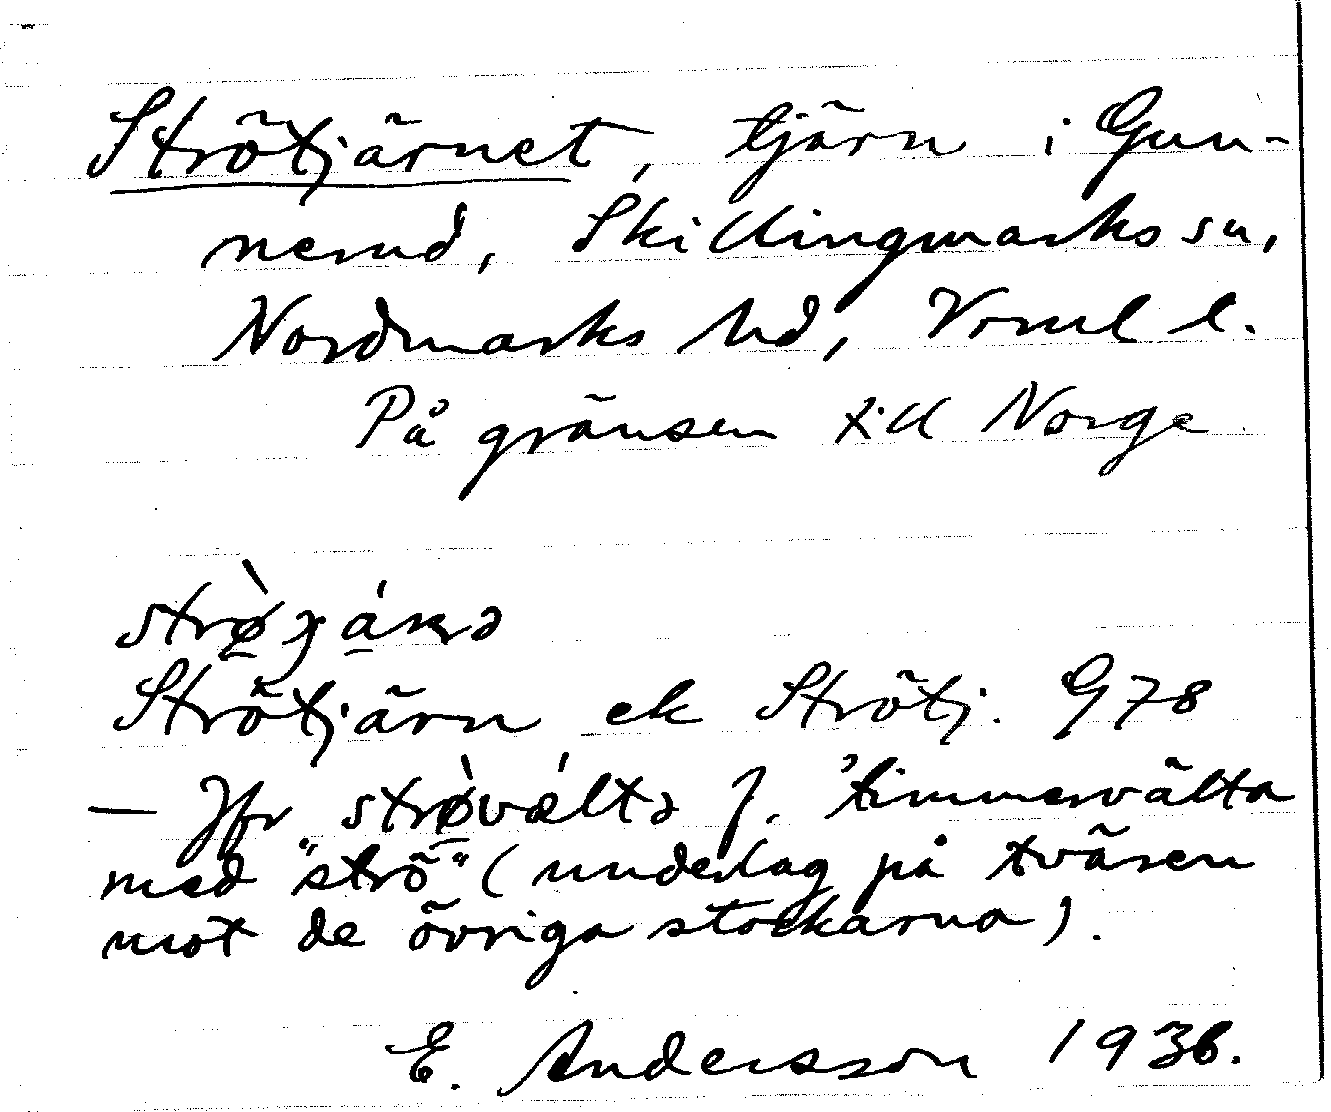 Strötjärnet, tjärn i Gun-
nerud, Skillingmarks sn,
Nordmarks hd, Vrml l.
På gränsen till Norge
Strötjärn ek Strötj. G78
— Jfr strø̀vǽltə f. 'timmervälta
med "strö" (underlag på tvären
mot de övriga stockarna).
E. Andersson 1936.